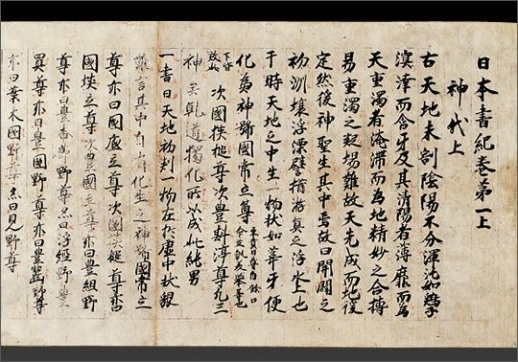 日本書紀巻第一上
神代上
古天地未剖陰陽不分渾沌如鷄子
溟涬而含牙及其清陽者薄靡而為
天重濁者淹滞而為地精妙之合搏
易重濁之凝堨難故天先成而地後
定然後神聖生其中焉故曰開闢之
初洲壤浮漂譬猶游魚之浮水上也
于時天地之中生一物状如葦牙便
化為神号國常立尊 至貴曰尊自餘曰
命並訓美挙等也
下皆效此 次國狭槌尊次豊斟渟尊凡三
神矣乾道獨化所以成此純男
一書曰天地初判一物在於虚中状貌
難言其中自有化生之神号國常立
尊亦曰國底立尊次國狭槌尊亦曰
國狭立尊次豊國主尊亦曰豊組野
尊亦曰豊香節野尊亦曰浮経野豊
買尊亦曰豊國野尊亦曰豊齧野尊
亦曰葉木國野尊亦曰見野尊